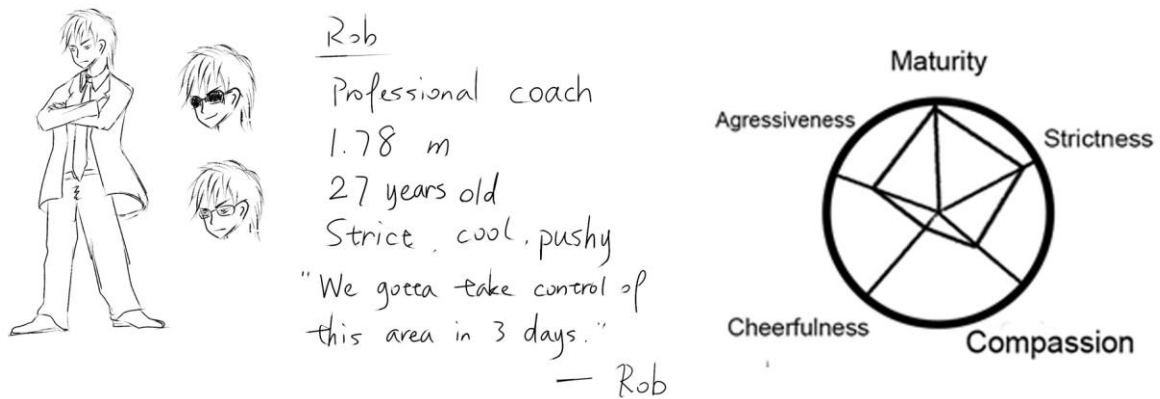 Rob
Professional coach
1.78 m
27 years old
Strice, cool, pushy
"We gotta take control of
this area in 3 days."
— Rob
Maturity
Agressiveness
Strictness
Cheerfulness
Compassion